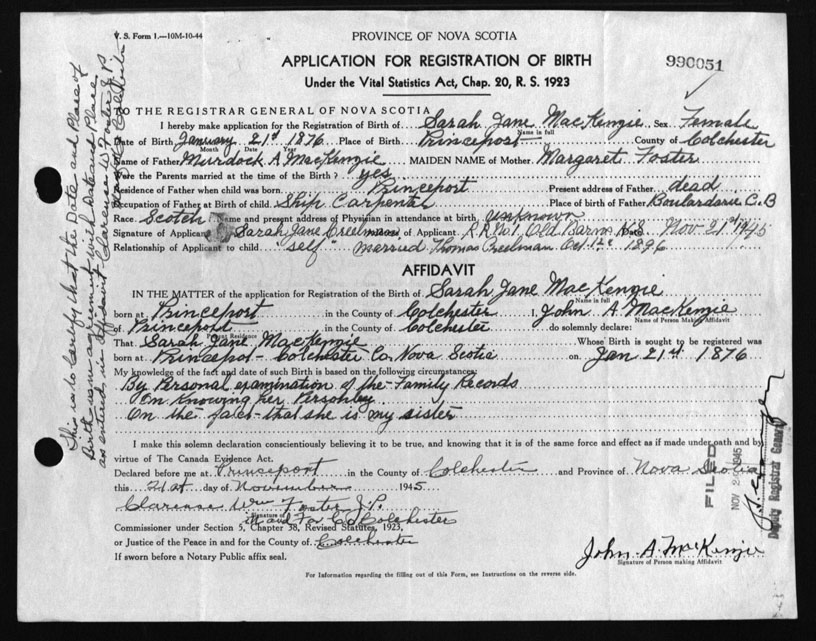 V. S. Form 1.—10M-10-44
PROVINCE OF NOVA SCOTIA
APPLICATION FOR REGISTRATION OF BIRTH
990051
Under the Vital Statistics Act, Chap. 20, R. S. 1923
TO THE REGISTRAR GENERAL OF NOVA SCOTIA
I hereby make application for the Registration of Birth of Sarah Jane MacKenzie, Sex Female
Name in full
Date of Birth January 21st 1876 Place of Birth Princeport County of Colchester
Month Date Year
Name of Father Murdock A MacKenzie MAIDEN NAME of Mother Margaret Foster
Were the Parents married at the time of the Birth? yes
Residence of Father when child was born Princeport Present address of Father dead
Occupation of Father at Birth of child Ship Carpenter Place of birth of Father Boulardarie C.B
Race Scotch Name and present address of Physician in attendance at birth unknown
Signature of Applicant Sarah Jane Creelman of Applicant R.R. No 1, Old Barns N.S. Nov 21st 1945
Relationship of Applicant to child "self" married Thomas Creelman Oct 1896
AFFIDAVIT
IN THE MATTER of the application for Registration of the Birth of Sarah Jane MacKenzie
Name in full
born at Princeport in the County of Colchester I, John A MacKenzie
Name of Person Making Affidavit
of Princeport in the County of Colchester do solemnly declare:
Residence
That Sarah Jane MacKenzie Whose Birth is sought to be registered was
born at Princeport - Colchester Co, Nova Scotia on Jan 21st 1876
My knowledge of the fact and date of such Birth is based on the following circumstances:
By Personal examination of the Family Records
On Knowing her Personley
On the fact that she is my sister
I make this solemn declaration conscientiously believing it to be true, and knowing that it is of the same force and effect as if made under oath and by
virtue of The Canada Evidence Act.
Declared before me at Princeport in the County of Colchester and Province of Nova Scotia
this 21st day of November 1945
Clarence Wm Foster J.P.
Signature of
in and For Co Colchester
Commissioner under Section 5, Chapter 38, Revised Statutes, 1923,
or Justice of the Peace in and for the County of Colchester
If sworn before a Notary Public affix seal.
John A. MacKenzie
Signature of Person making Affidavit
For Information regarding the filling out of this Form, see Instructions on the reverse side.
This is to Certify that the Date and Place of
Birth agreement with Date and Place
as entered in affidavit Clarence W Foster J.P
Colchester
FILED
NOV 2 1945
Deputy Registrar General